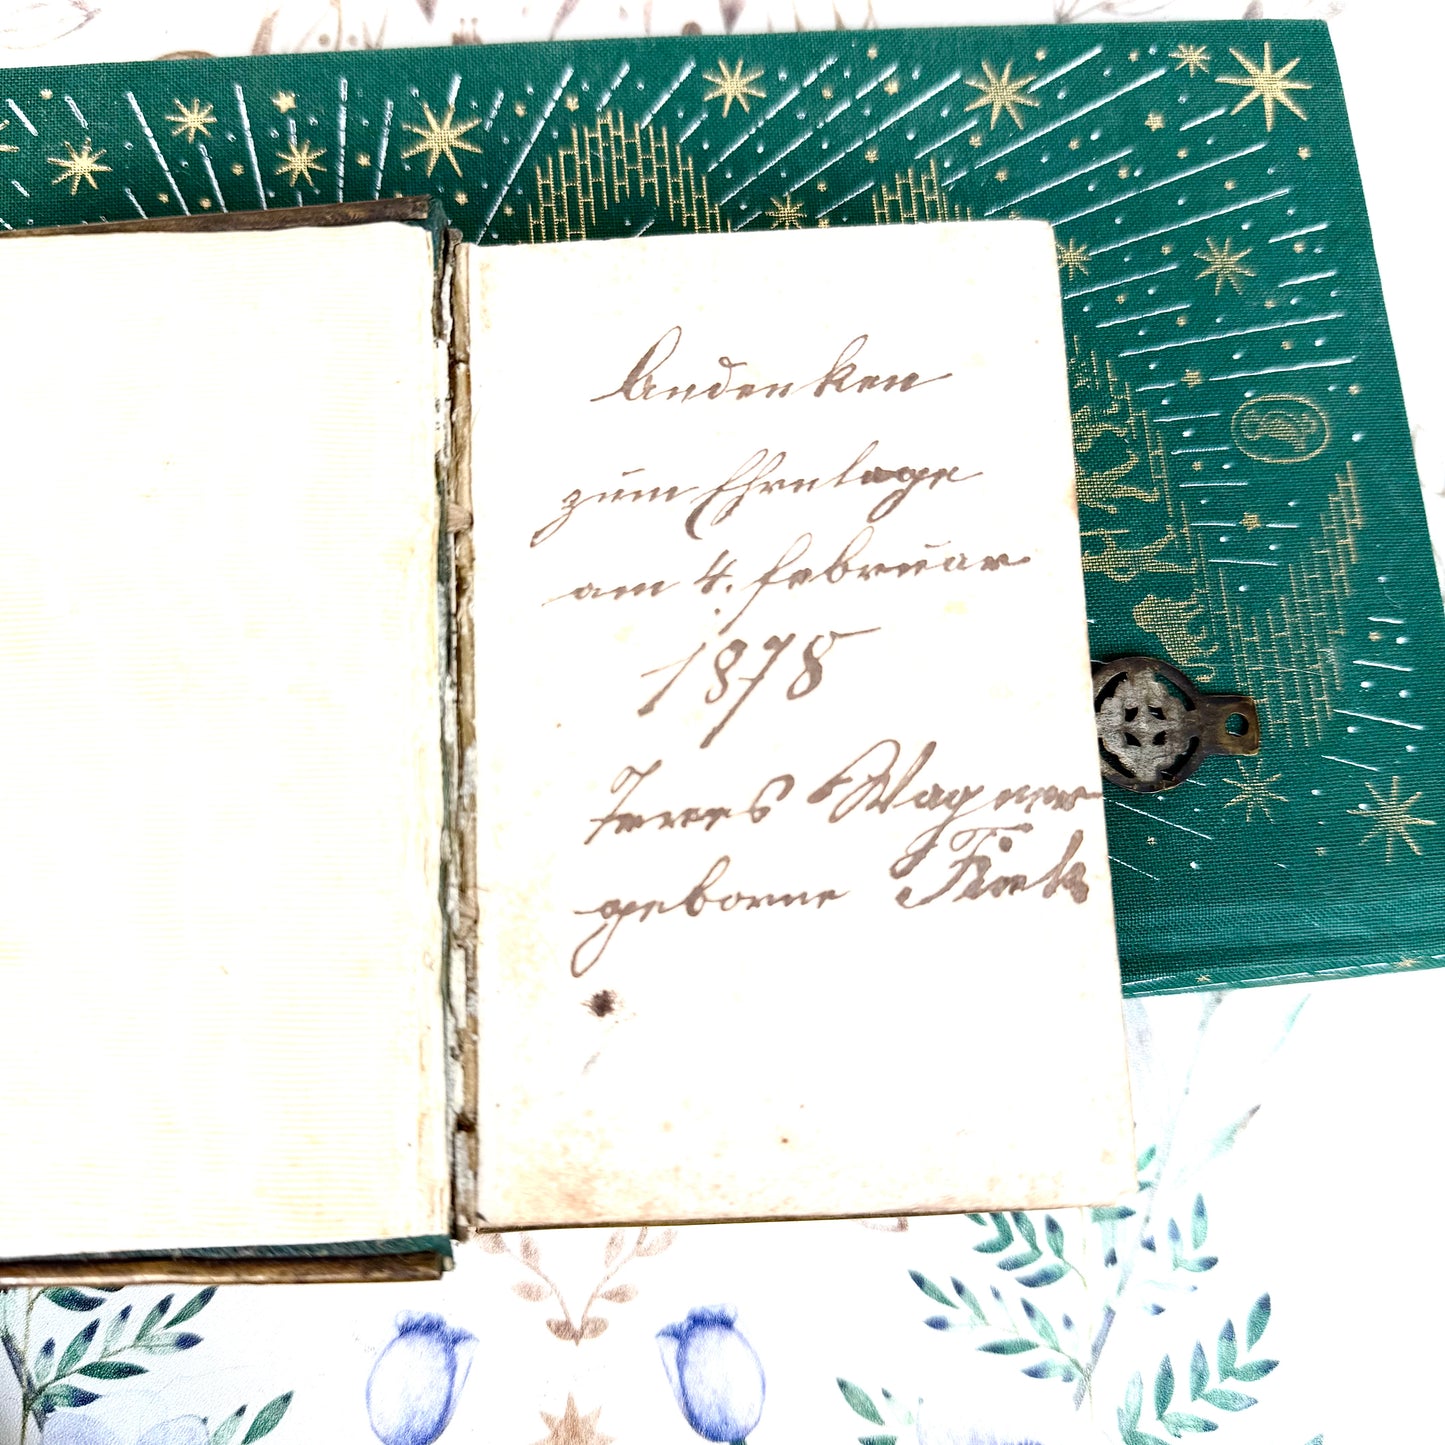 Andenken
zum Ehrentage
am 4. Februar
1878
Terees Wagner
geborne Fink